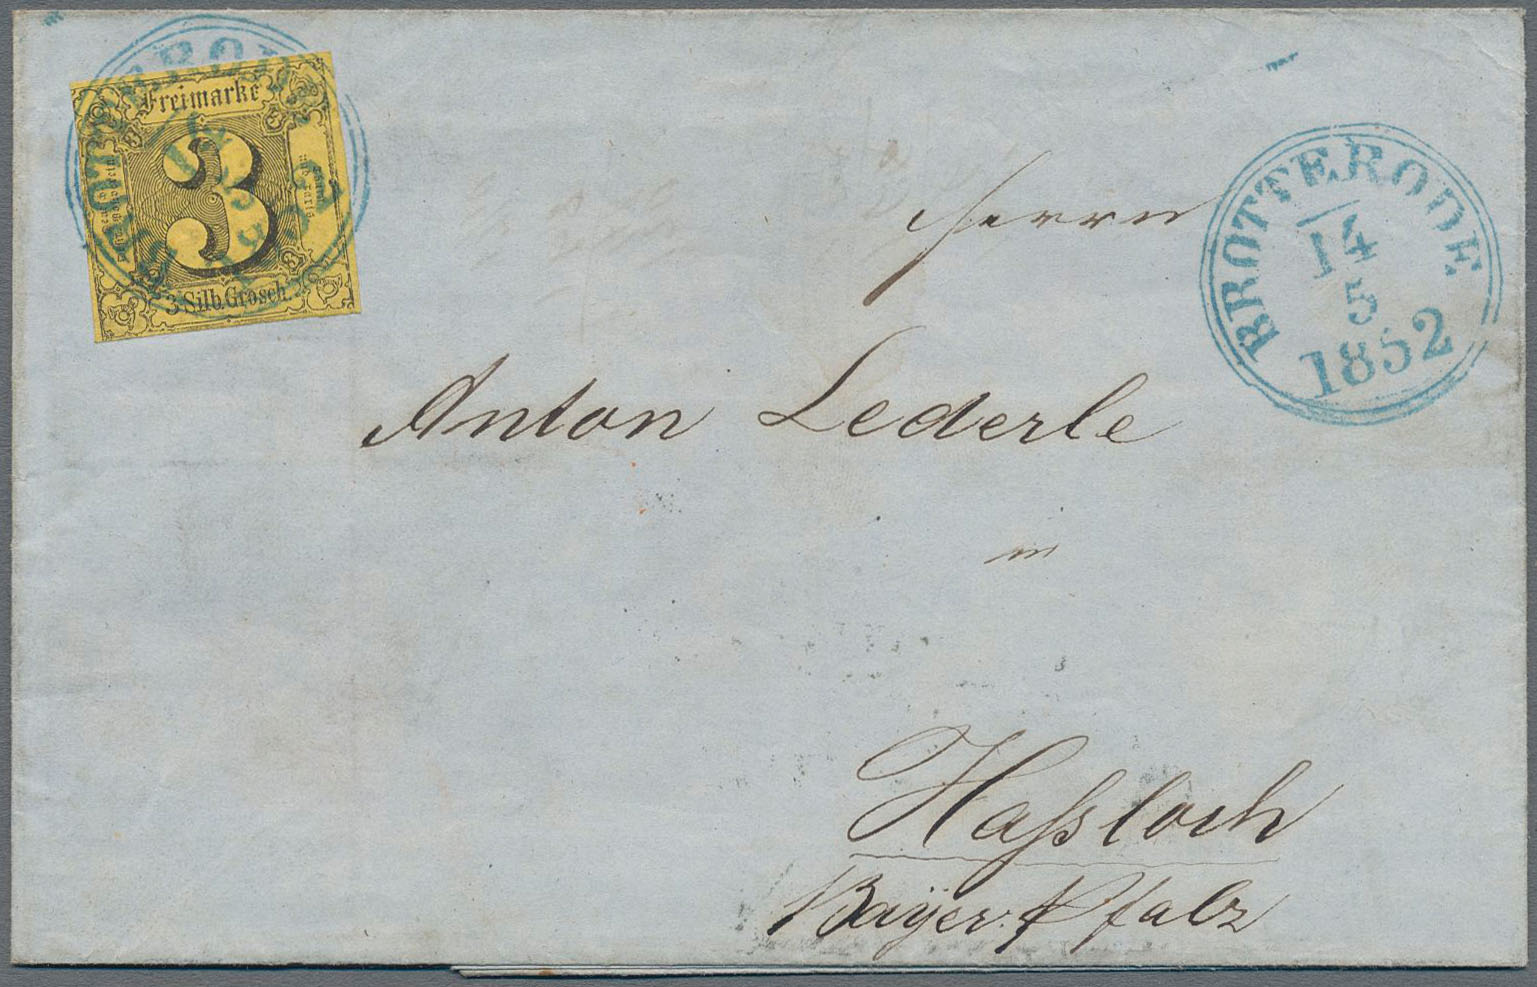 Freimarke
3
3 Silb. Grosch.
BROTTERODE
14
5
1852
Herrn
Anton Lederle
in
Haßloch
Bayer. Pfalz